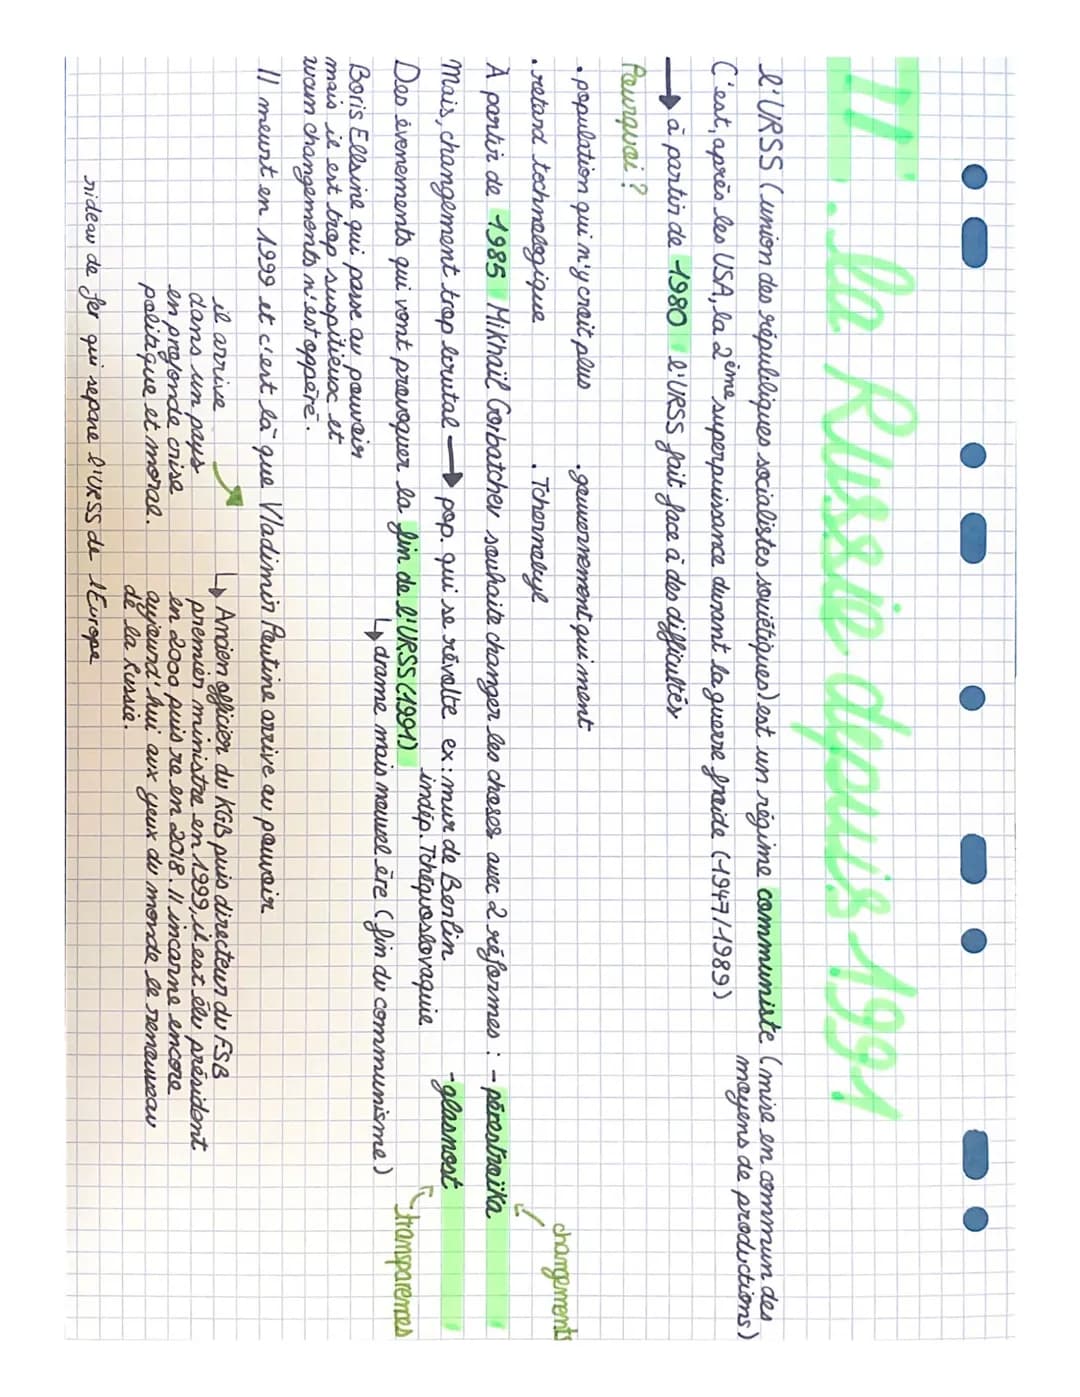 II. la Russie dpuis 1991
l'URSS (union des républiques socialistes soviétiques) est un régime communiste (mise en commun des
moyens de productions)
C'est, après les USA, la 2ème superpuissance durant la guerre froide (1947/1989)
→ à partir de 1980 l'URSS fait face à des difficultés
Pourquoi ?
. population qui n'y croit plus . gouvernement qui ment
. retard technologique . Tchernobyl
changements
À partir de 1985 Mikhaïl Gorbatchev souhaite changer les choses avec 2 réformes : - pérestroïka
Mais, changement trop brutal → pop. qui se révolte ex : mur de Berlin - glasnost
indép. Tchéquoslovaquie
transparences
Des évenements qui vont provoquer la fin de l'URSS (1991)
↳ drame mais nouvel ère (fin du communisme)
Boris Ellsine qui passe au pouvoir
mais il est trop suspitieux et
aucun changements n'est oppéré.
Il meurt en 1999 et c'est là que Vladimir Poutine arrive au pouvoir
il arrive
dans un pays
en profonde crise
politique et moral.
↳ Ancien officier du KGB puis directeur du FSB
premier ministre en 1999, il est élu président
en 2000 puis re en 2018. Il incarne encore
aujourd'hui aux yeux du monde le renouveau
de la Russie.
rideau de fer qui separe l'URSS de l'Europe